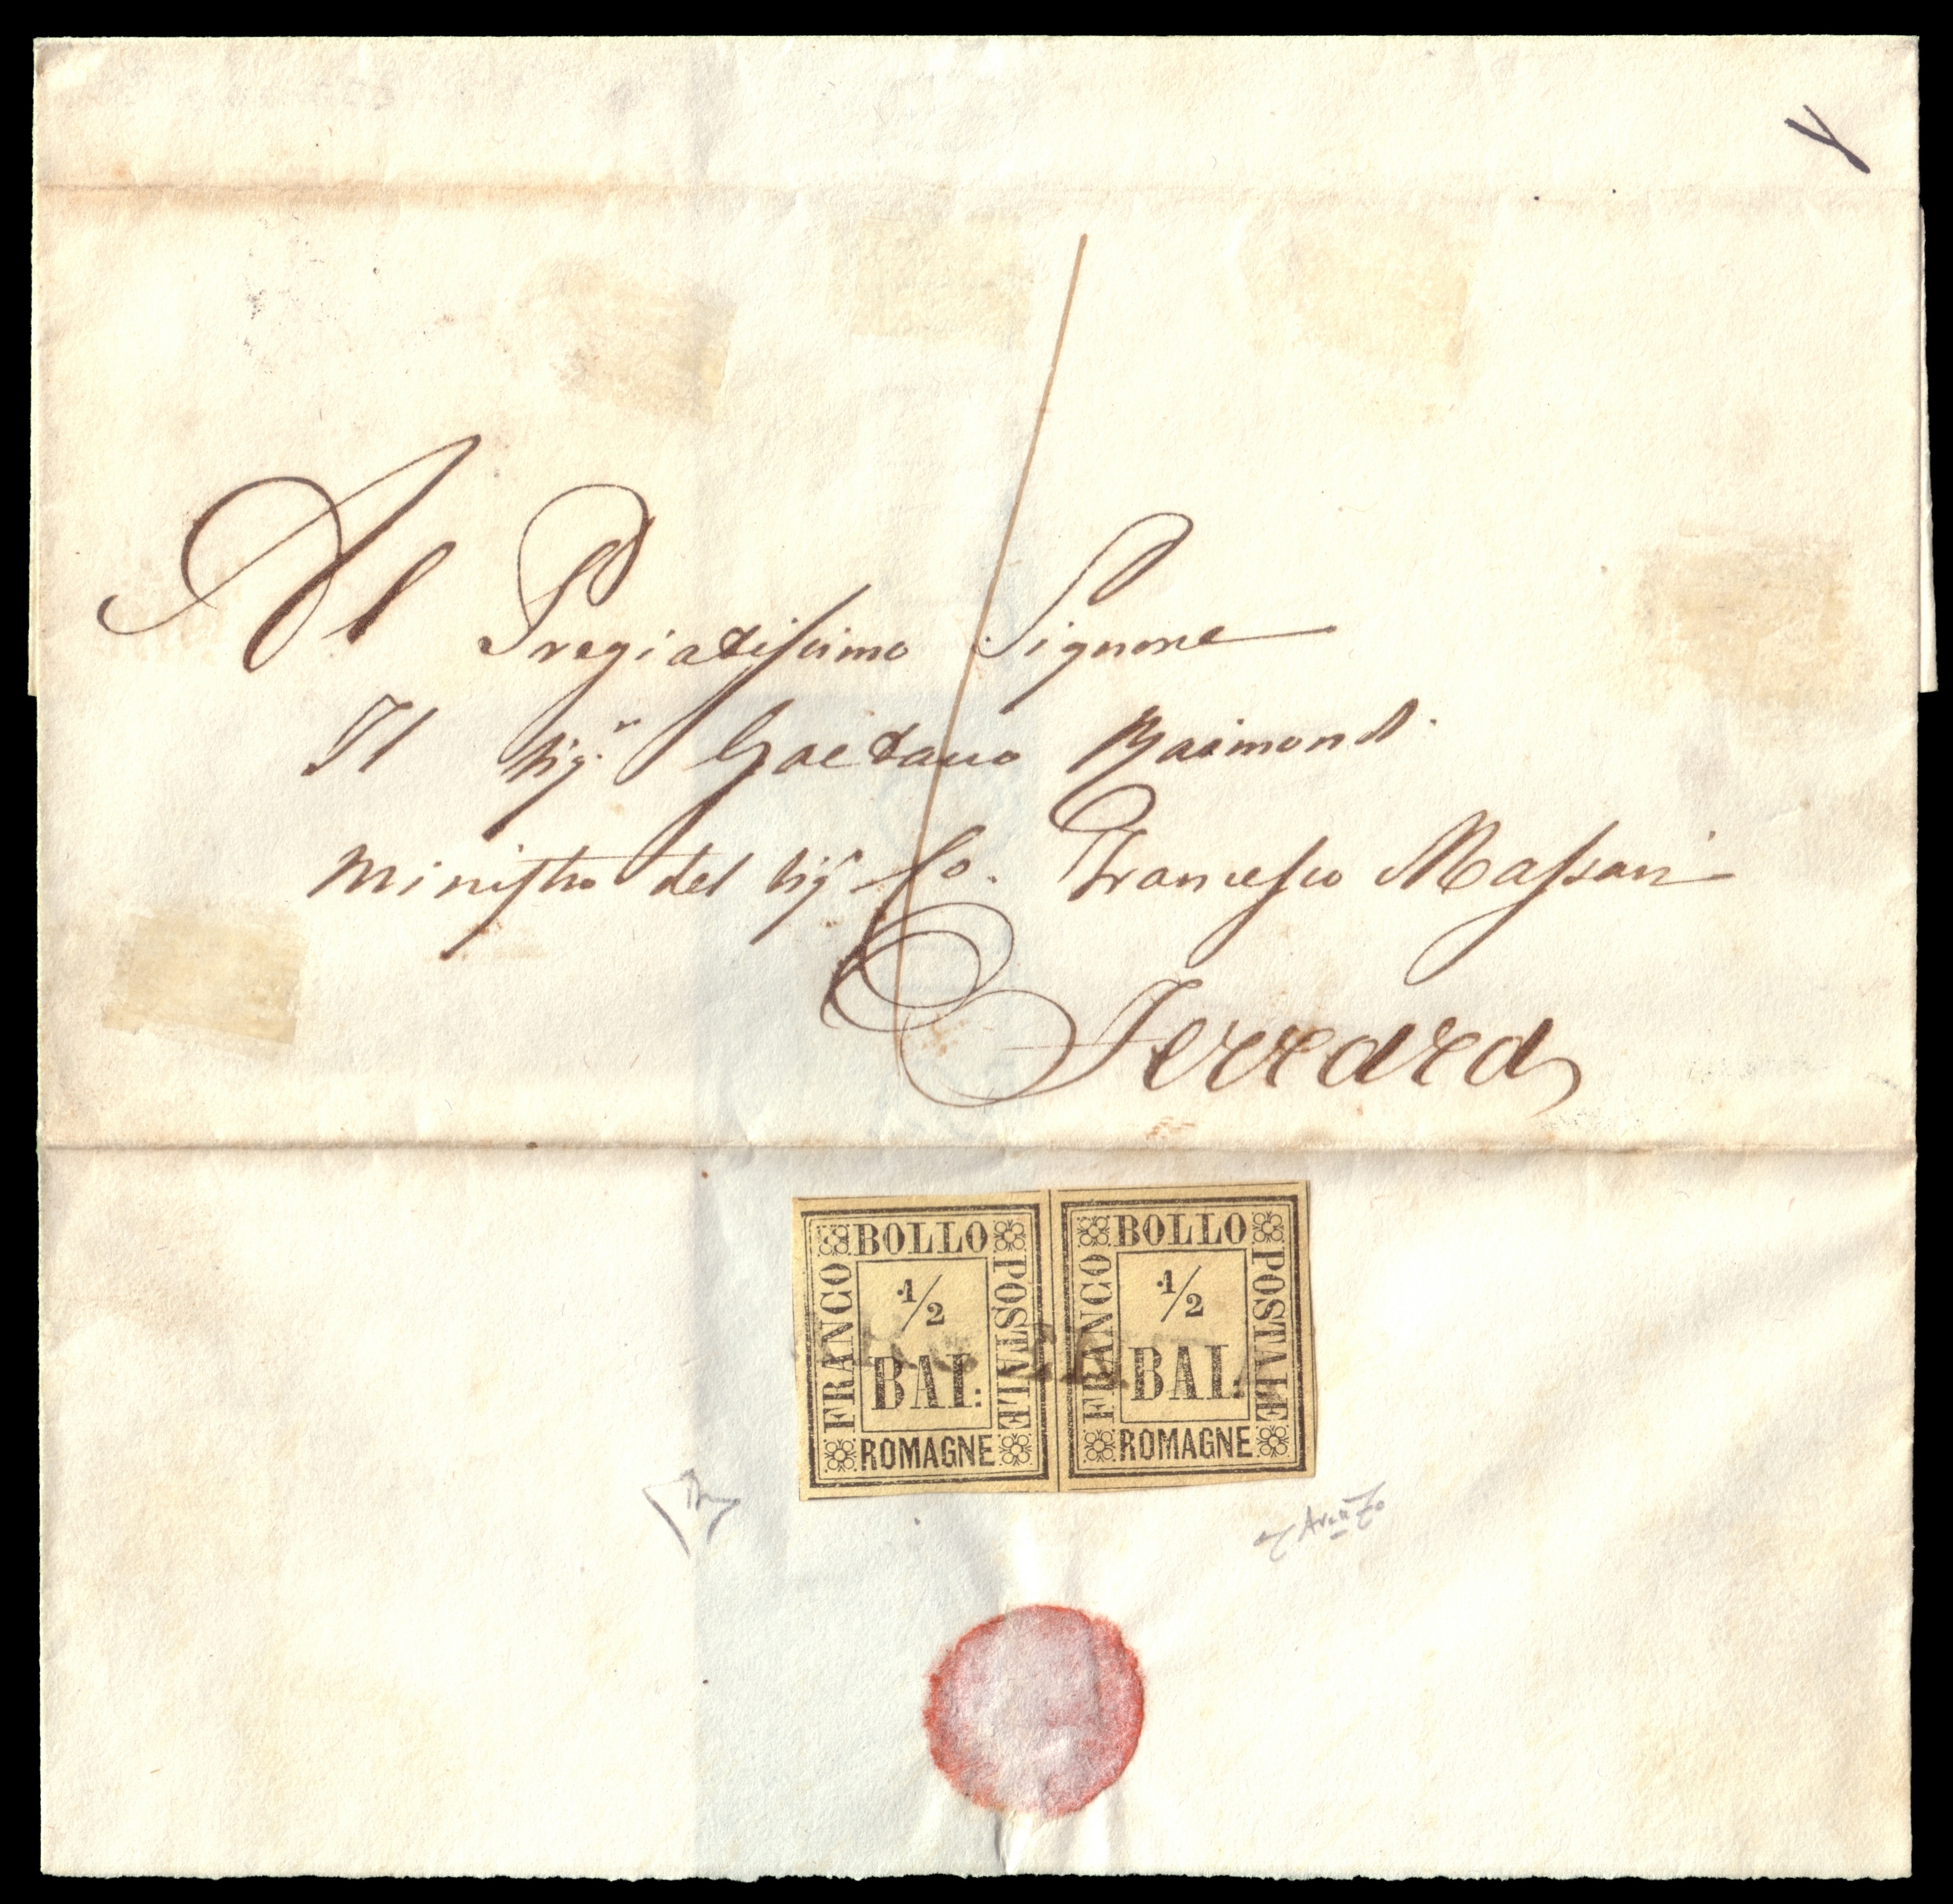 Al Pregiatissimo Signore
Il Sig.r Gaetano Raimondi
Ministro del Sig.r Co. Francesco Massari
Ferrara
BOLLO
FRANCO
POSTALE
1/2
BAI:
ROMAGNE
BOLLO
FRANCO
POSTALE
1/2
BAI:
ROMAGNE